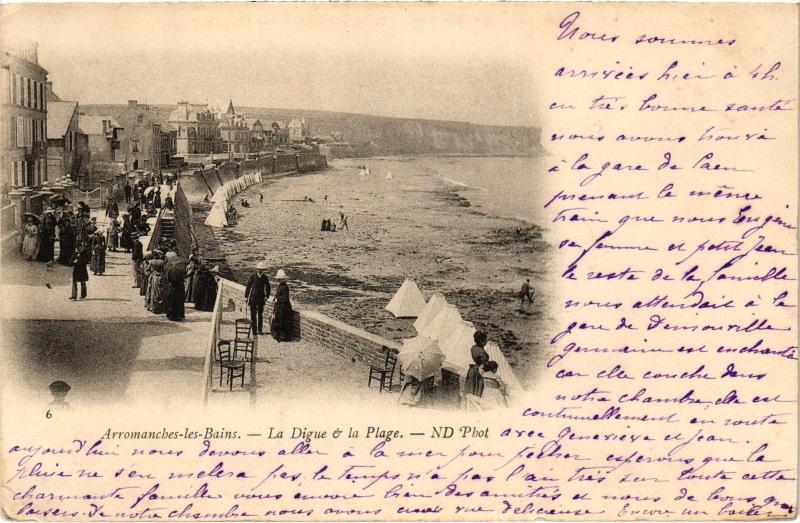 Nous sommes
arrivées hier à 4h.
en très bonne santé
nous avons trouvé
à la gare de Caen
prenant le même
train que nous Eugène
sa femme et petit Jean
le reste de la famille
nous attendait à la
gare de
germaine est enchantée
car elle couche dans
notre chambre, elle est
continuellement en route
avec Geneviève et Jean.
6
Arromanches-les-Bains. — La Digue & la Plage. — ND Phot
aujourd'hui nous devons aller à la mer pour pêcher espérons que la
pluie ne s'en mêlera pas, le temps n'a pas l'air très sur toute cette
charmante famille vous envoie bien des amitiés et nous de bons gros
baisers. De notre chambre nous avons une vue délicieuse Encore un baiser